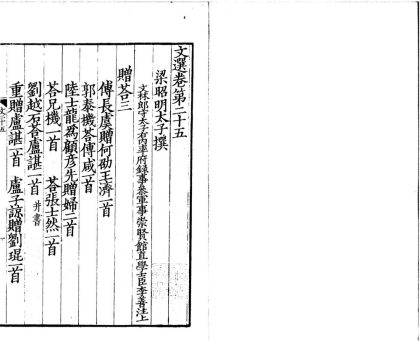 文選卷第二十五
梁昭明太子撰
文林郎守太子內率府錄事參軍事崇賢館直學士臣李善注上
贈荅三
傅長虞贈何劭王濟一首
郭泰機荅傅咸一首
陸士龍爲顧彥先贈婦二首
荅兄機一首 荅張士然一首
劉越石荅盧諶一首 并書
重贈盧諶一首 盧子諒贈劉琨一首